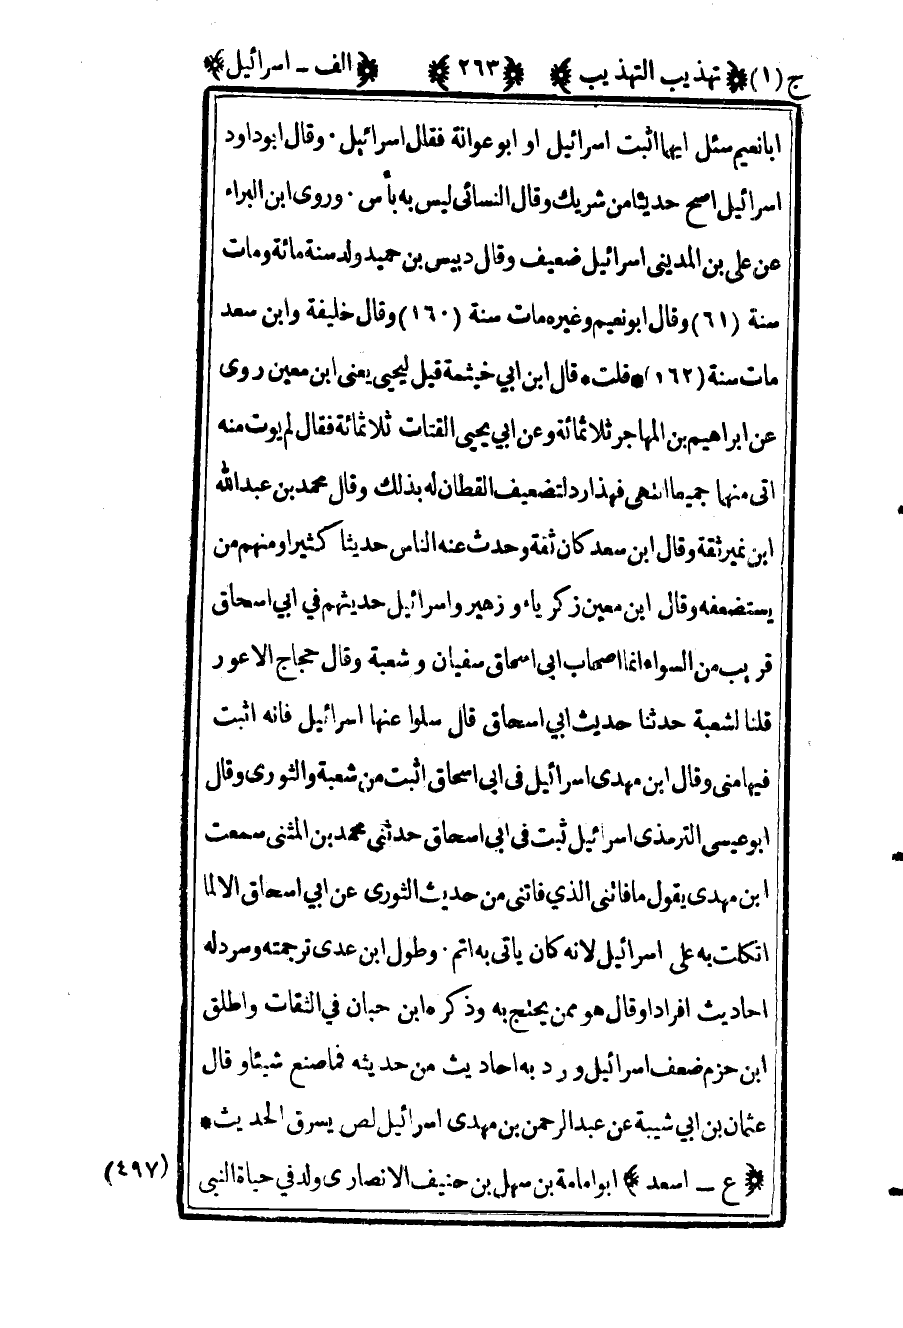 ج (١) ﴿ تهذيب التهذيب ﴾ ﴿ ٢٦٣ ﴾ ﴿ الف ـ اسرائيل ﴾
ابانعيم سئل ايهما اثبت اسرائيل او ابو عوانة فقال اسرائيل ٠ وقال ابو داود
اسرائيل اصح حديثا من شريك وقال النسائى ليس به بأس ٠ وروى ابن البراء
عن على بن المدينى اسرائيل ضعيف وقال دبيس بن حميد ولد سنة مائة ومات
سنة (٦١) وقال ابو نعيم وغيره مات سنة (١٦٠) وقال خليفة وابن سعد
مات سنة (١٦٢) * قلت * قال ابن ابي خيثمة قيل ليحيى يعنى ابن معين روى
عن ابراهيم بن المهاجر ثلاثمائة وعن ابي يحيى القتات ثلاثمائة فقال لم يوت منه
اتى منهما جميعا انتهى فهذا رد لتضعيف القطان له بذلك وقال محمد بن عبدالله
ابن نمير ثقة وقال ابن سعد كان ثقة وحدث عنه الناس حديثا كثيرا ومنهم من
يستضعفه وقال ابن معين زكرياء و زهير واسرائيل حديثهم في ابي اسحاق
قريب من السواء انما اصحاب ابى اسحاق سفيان و شعبة وقال حجاج الاعور
قلنا لشعبة حدثنا حديث ابي اسحاق قال سلوا عنها اسرائيل فانه اثبت
فيها منى وقال ابن مهدى اسرائيل فى ابى اسحاق اثبت من شعبة والثورى وقال
ابو عيسى الترمذى اسرائيل ثبت فى ابي اسحاق حدثني محمد بن المثنى سمعت
ابن مهدى يقول ما فاتنى الذي فاتنى من حديث الثورى عن ابي اسحاق الا لما
اتكلت به على اسرائيل لانه كان ياتى به اتم ٠ وطول ابن عدى ترجمته وسرد له
احاديث افرادا وقال هو ممن يحتج به وذكره ابن حبان في الثقات واطلق
ابن حزم ضعف اسرائيل ورد به احاديث من حديثه فما صنع شيئا وقال
عثمان بن ابي شيبة عن عبدالرحمن بن مهدى اسرائيل لص يسرق الحديث *
﴿ ع ـ اسعد ﴾ ابو امامة بن سهل بن حنيف الانصارى ولد في حياة النبى
(٤٩٧)